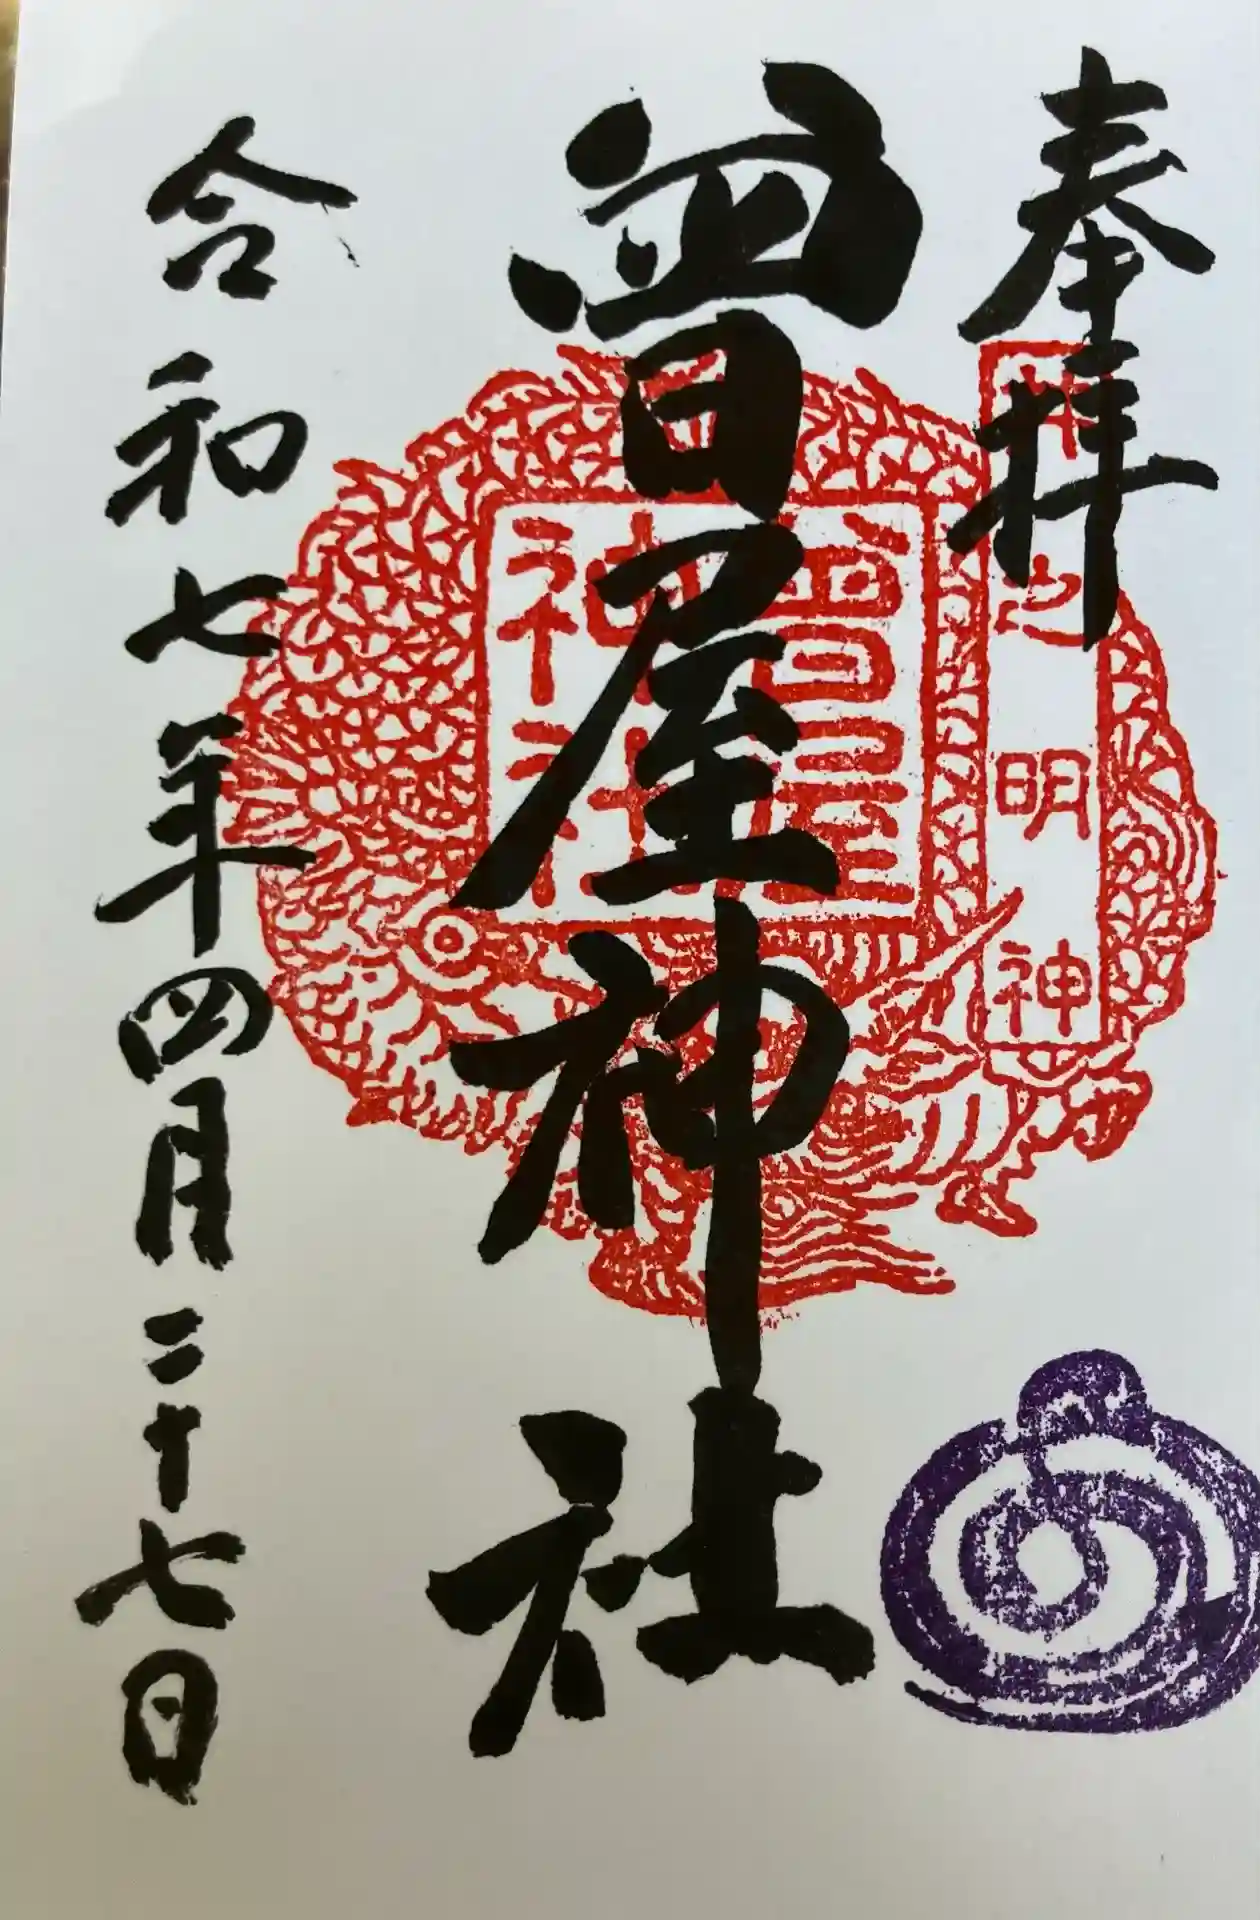 奉拝
井之明神
曾屋神社
曾屋
神社
令和七年四月二十七日